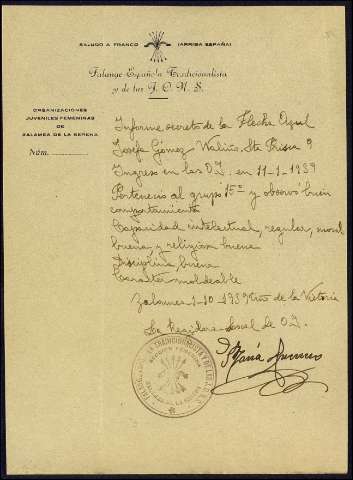 SALUDO A FRANCO (ARRIBA ESPAÑA)
Falange Española Tradicionalista
y de las J. O. N. S.
ORGANIZACIONES
JUVENILES FEMENINAS
DE
ZALAMEA DE LA SERENA
Núm.
Informe secreto de la Flecha Azul
Josefa Gómez Sta Prisca 9
Ingreso en las O.J. en 11-1-1939
Pertenecio al grupo 15º y observó buen
comportamiento
Capacidad intelectual, regular, moral
buena, y religiosa buena
Disciplina, buena
Caracter moldeable
Zalamea 1-10-1939 Año de la Victoria
La Regidora Local de O.J.
María